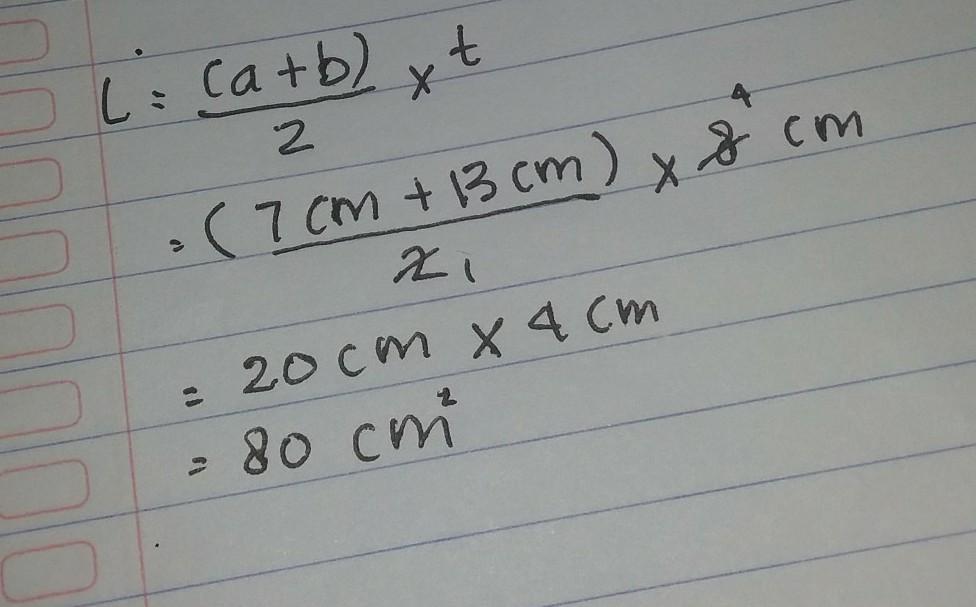 L = (a+b)/2 x t
= (7 cm + 13 cm)/2 1 x 8 4 cm
= 20 cm x 4 cm
= 80 cm²